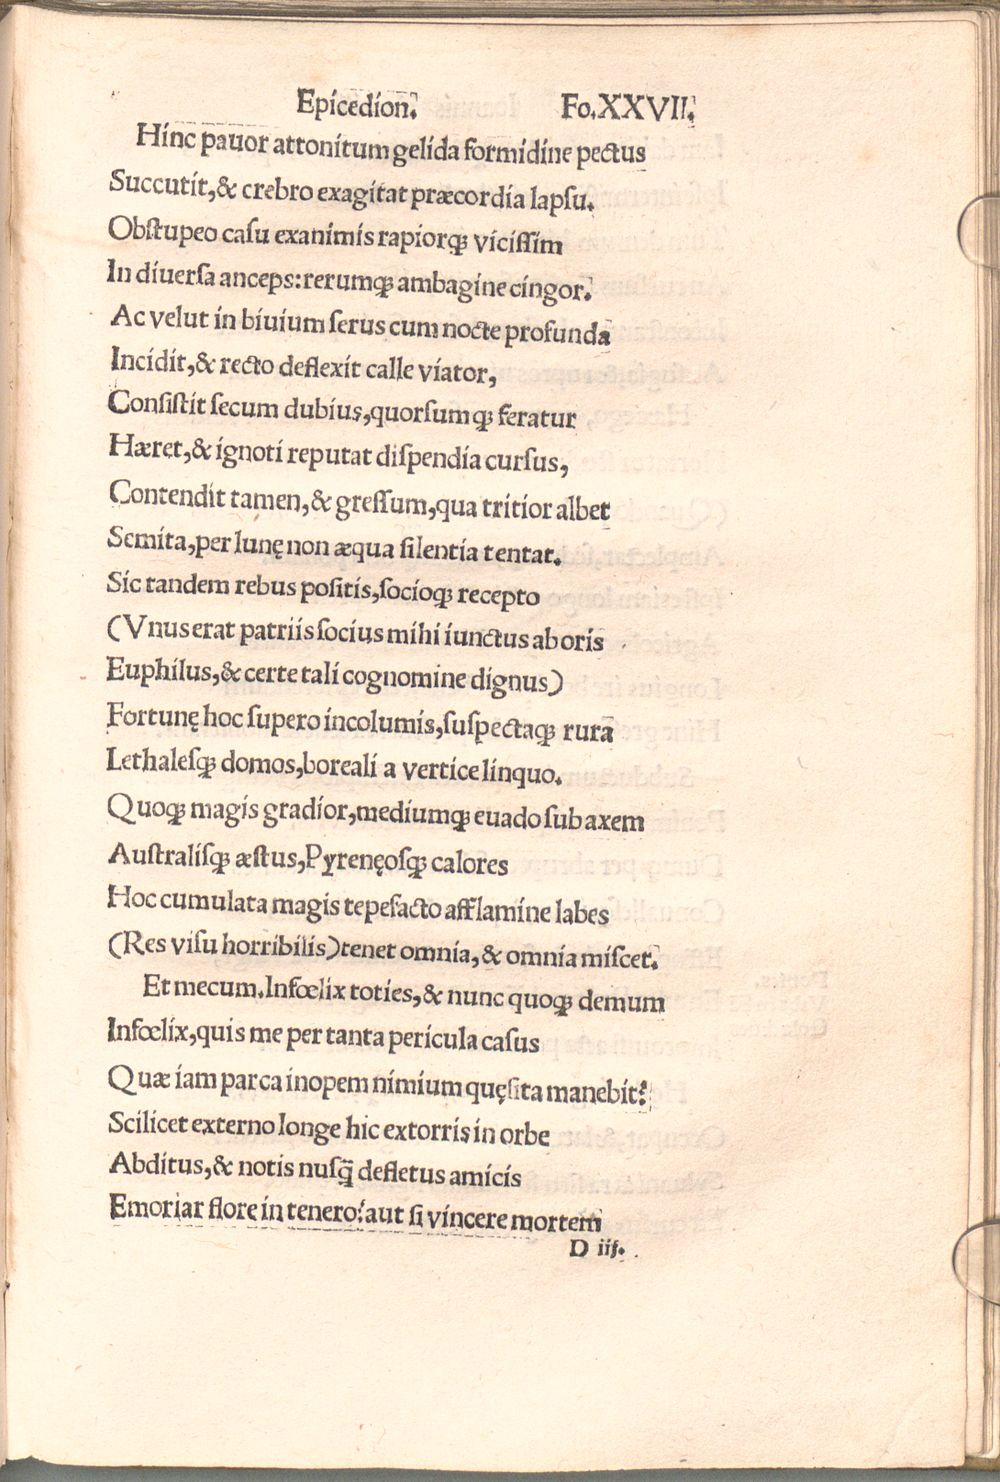 Epicedion. Fo.XXVII.
Hinc pauor attonitum gelida formidine pectus
Succutit,& crebro exagitat præcordia lapsu.
Obstupeo casu exanimis rapiorqꝫ vicissim
In diuersa anceps:rerumqꝫ ambagine cingor.
Ac velut in biuium serus cum nocte profunda
Incidit,& recto deflexit calle viator,
Consistit secum dubius,quorsumqꝫ feratur
Hæret,& ignoti reputat dispendia cursus,
Contendit tamen,& gressum,qua tritior albet
Semita,per lunę non æqua silentia tentat.
Sic tandem rebus positis,socioqꝫ recepto
(Vnus erat patriis socius mihi iunctus ab oris
Euphilus,& certe tali cognomine dignus)
Fortunę hoc supero incolumis,suspectaqꝫ rura
Lethalesqꝫ domos,boreali a vertice linquo.
Quoqꝫ magis gradior,mediumqꝫ euado sub axem
Australisqꝫ æstus,Pyrenęosqꝫ calores
Hoc cumulata magis tepefacto afflamine labes
(Res visu horribilis)tenet omnia,& omnia miscet.
Et mecum.Infœlix toties,& nunc quoqꝫ demum
Infœlix,quis me per tanta pericula casus
Quæ iam parca inopem nimium quęsita manebit?
Scilicet externo longe hic extorris in orbe
Abditus,& notis nusq̃ defletus amicis
Emoriar flore in tenero?aut si vincere mortem
D iii.